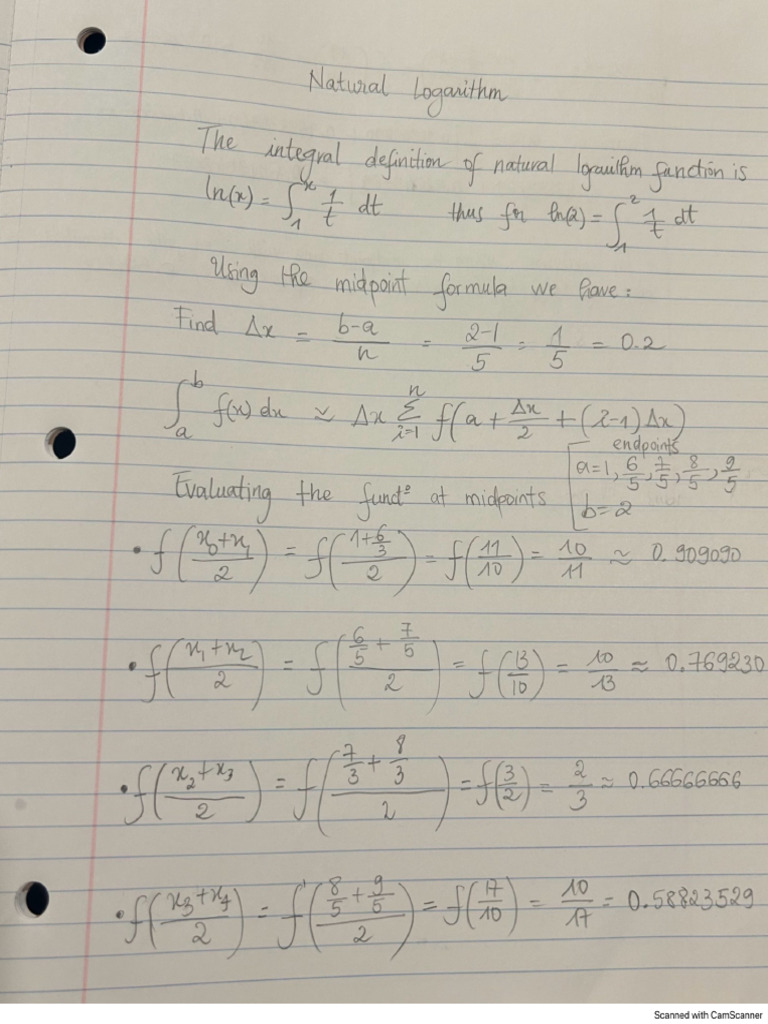 Natural Logarithm
The integral definition of natural logarithm function is
ln(x) = ∫₁ˣ 1/t dt thus for ln(2) = ∫₁² 1/t dt
Using the midpoint formula we have:
Find Δx = (b-a)/n = (2-1)/5 = 1/5 = 0.2
∫ₐᵇ f(x) dx ≃ Δx Σᵢ₌₁ⁿ f(a + Δx/2 + (i-1) Δx)
endpoints
a=1, 6/5, 7/5, 8/5, 9/5
Evaluating the functº at midpoints
b=2
• f((x₀+x₁)/2) = f((1+6/3)/2) = f(11/10) = 10/11 ≈ 0.909090
• f((x₁+x₂)/2) = f((6/5 + 7/5)/2) = f(13/10) = 10/13 ≈ 0.769230
• f((x₂+x₃)/2) = f((7/3 + 8/3)/2) = f(3/2) = 2/3 ≈ 0.66666666
• f((x₃+x₄)/2) = f((8/5 + 9/5)/2) = f(17/10) = 10/17 = 0.58823529
Scanned with CamScanner